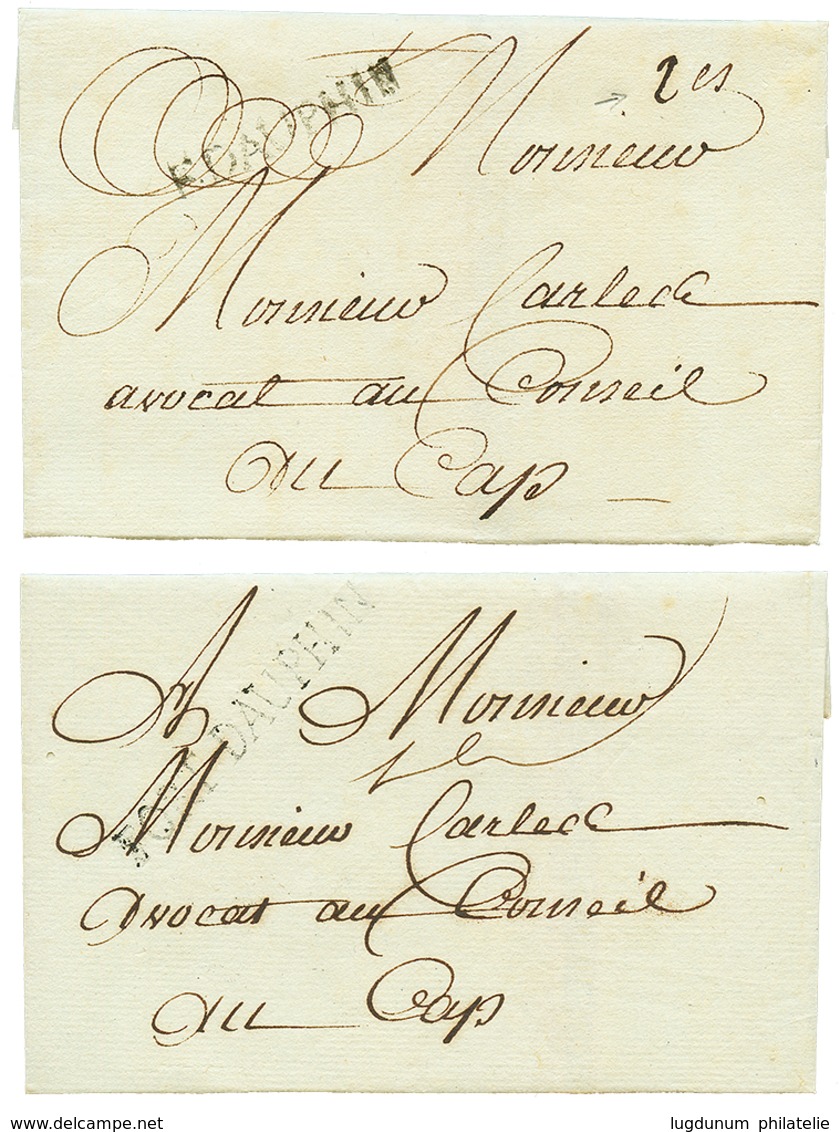 F.DAUPHIN
2 es
Monsieur
Monsieur Carlede
avocat au Conseil
au Cap
FORT DAUPHIN
A Monsieur
Monsieur Carlede
avocat au Conseil
au Cap
www.delcampe.net
lugdunum philatelie